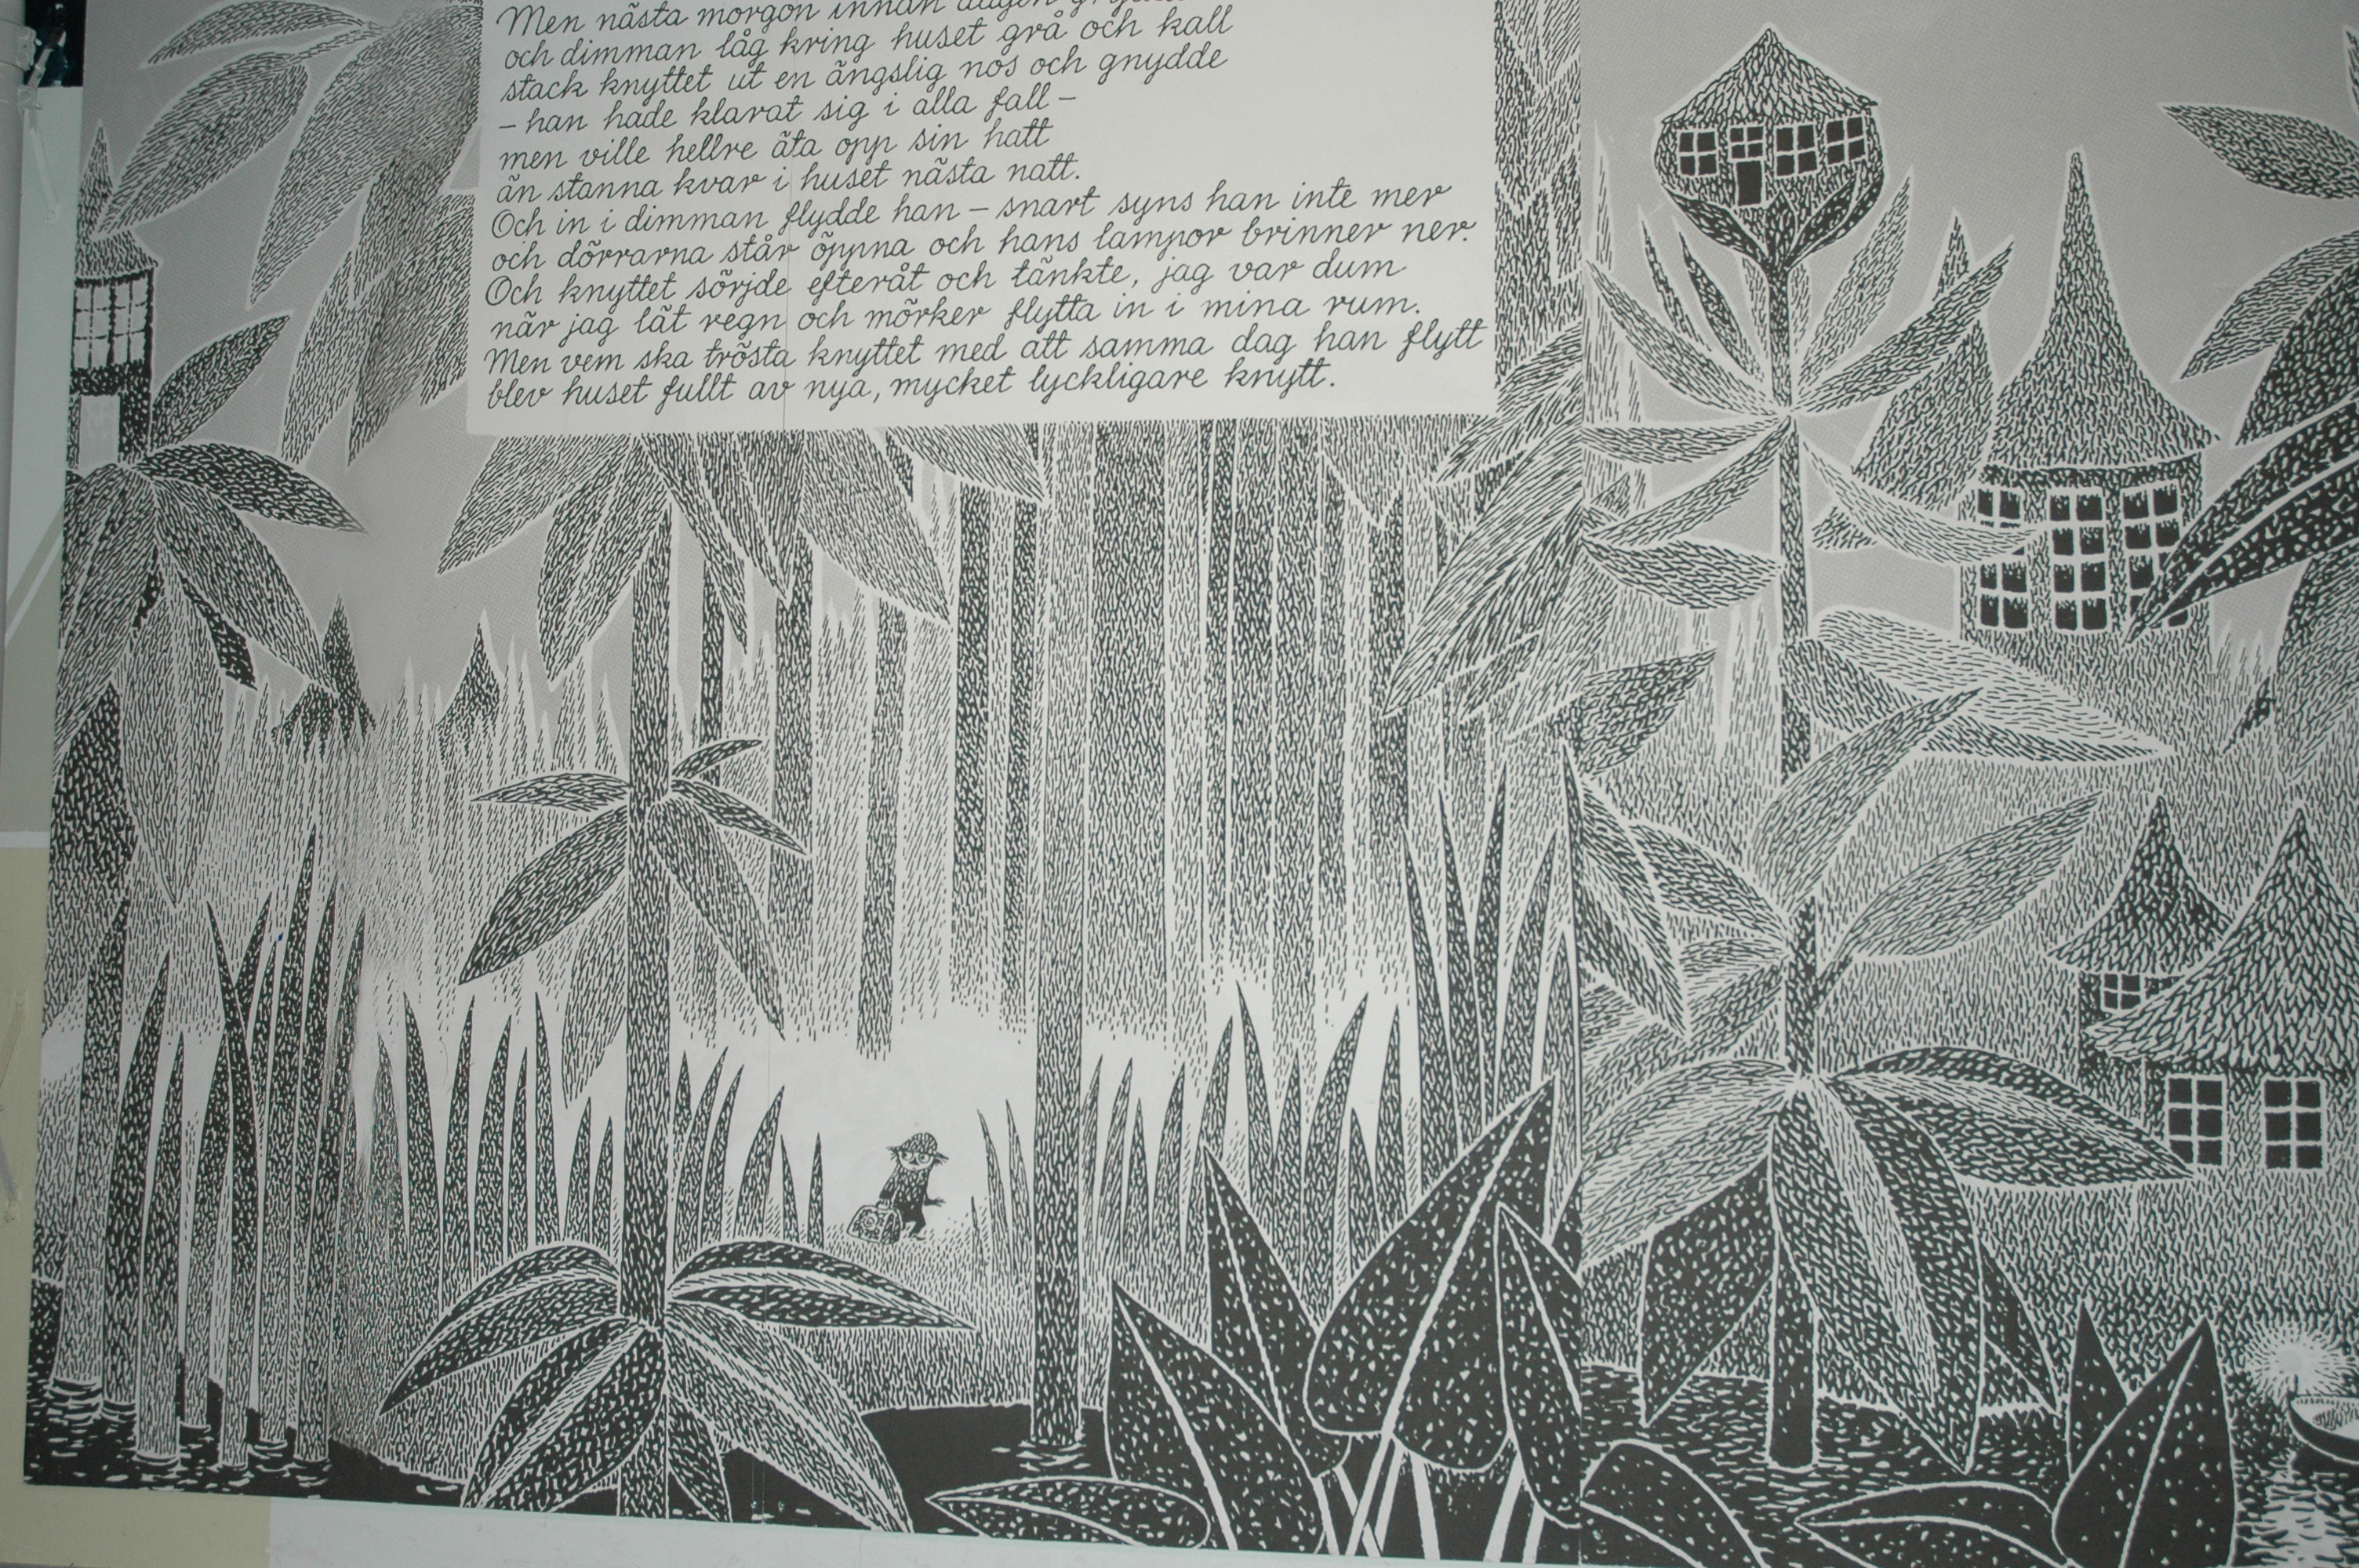 Men nästa morgon innan dagen
och dimman låg kring huset grå och kall
stack knyttet ut en ängslig nos och gnydde
– han hade klarat sig i alla fall –
men ville hellre äta opp sin hatt
än stanna kvar i huset nästa natt.
Och in i dimman flydde han – snart syns han inte mer
och dörrarna står öppna och hans lampor brinner ner.
Och knyttet sörjde efteråt och tänkte, jag var dum
när jag lät regn och mörker flytta in i mina rum.
Men vem ska trösta knyttet med att samma dag han flytt
blev huset fullt av nya, mycket lyckligare knytt.